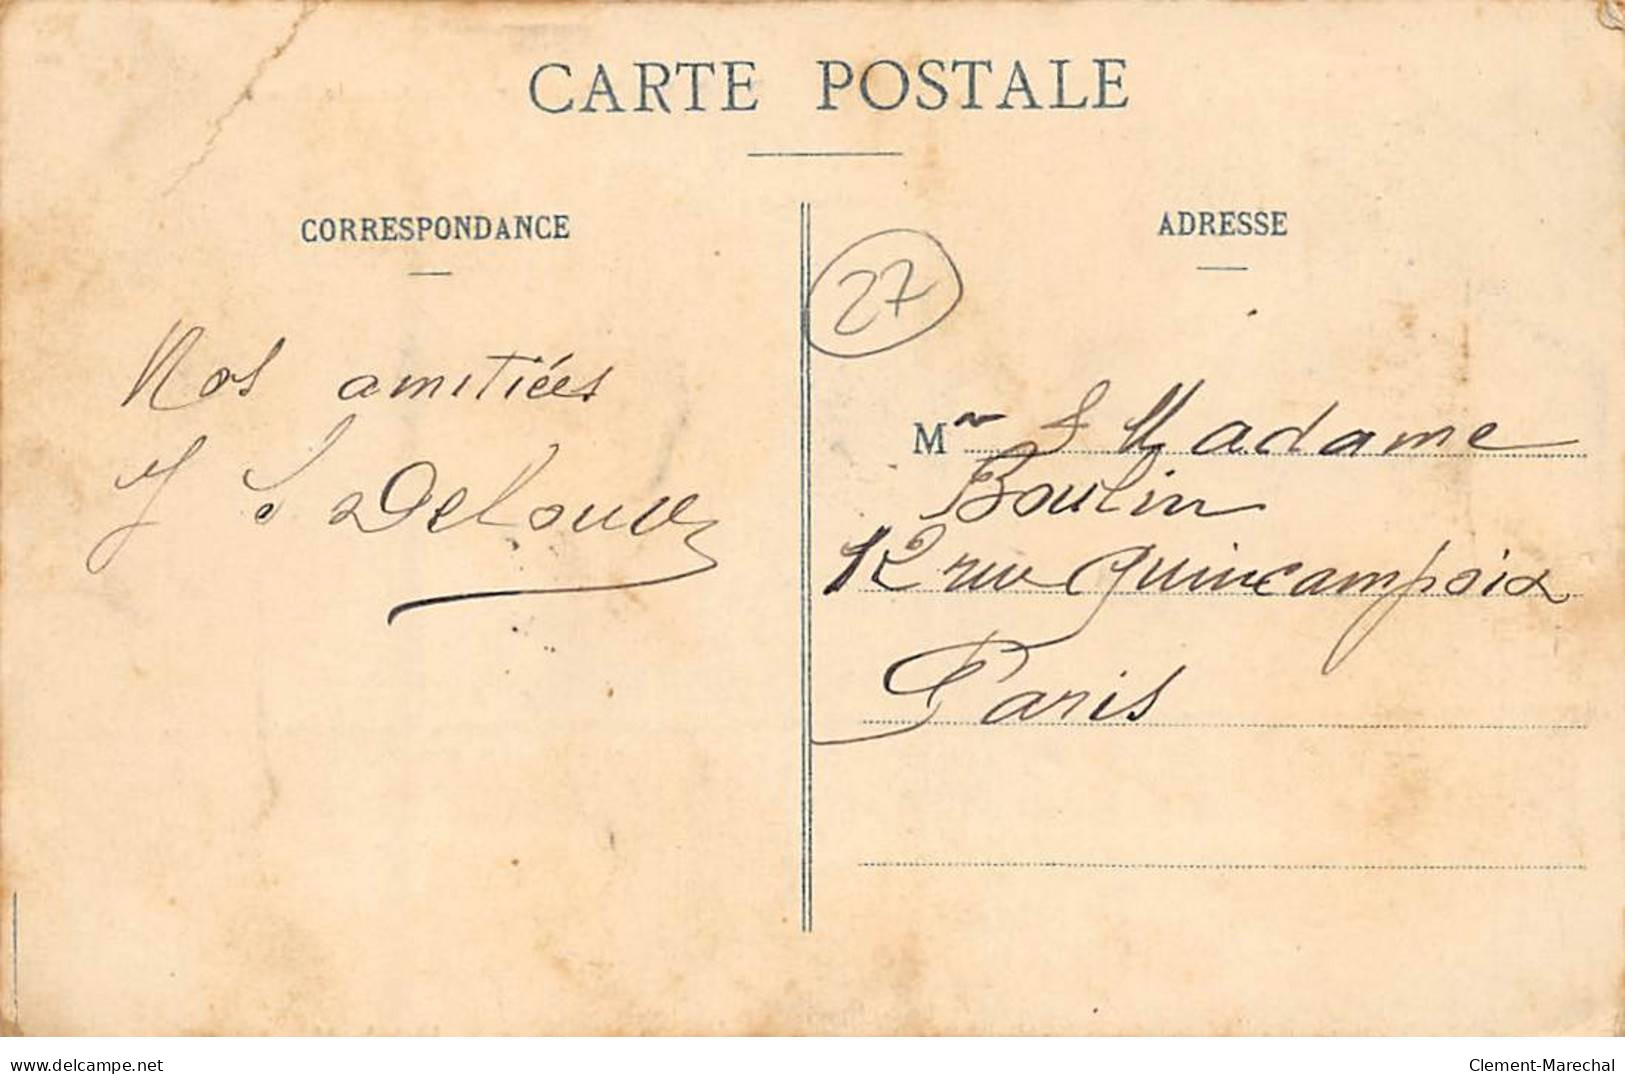 CARTE POSTALE
CORRESPONDANCE
ADRESSE
27
Nos amitiées
Mr & Madame
Boulin
12 rue Quincampoix
Paris
www.delcampe.net
Clement-Marechal